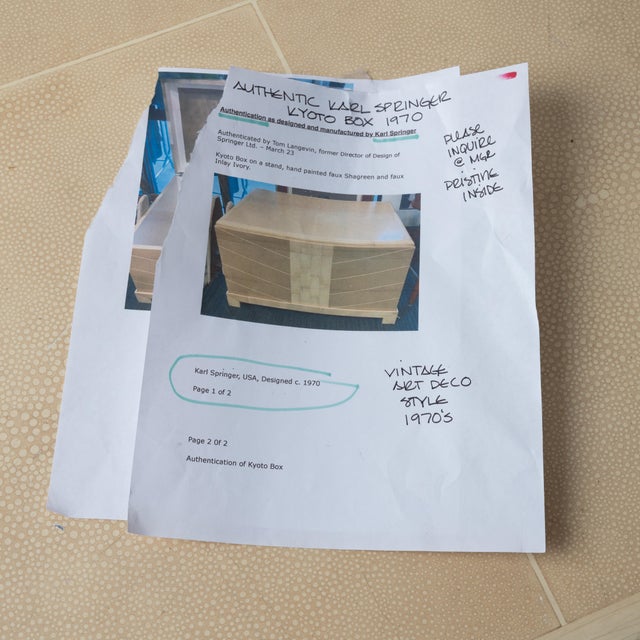 AUTHENTIC KARL SPRINGER
KYOTO BOX 1970
Authentication as designed and manufactured by Karl Springer
Authenticated by Tom Langevin, former Director of Design of
Springer Ltd. – March 23
Kyoto Box on a stand, hand painted faux Shagreen and faux
Inlay Ivory.
PLEASE
INQUIRE
@ MGR
PRISTING
INSIDE
Karl Springer, USA, Designed c. 1970
Page 1 of 2
VINTAGE
ART DECO
STYLE
1970's
Page 2 0f 2
Authentication of Kyoto Box